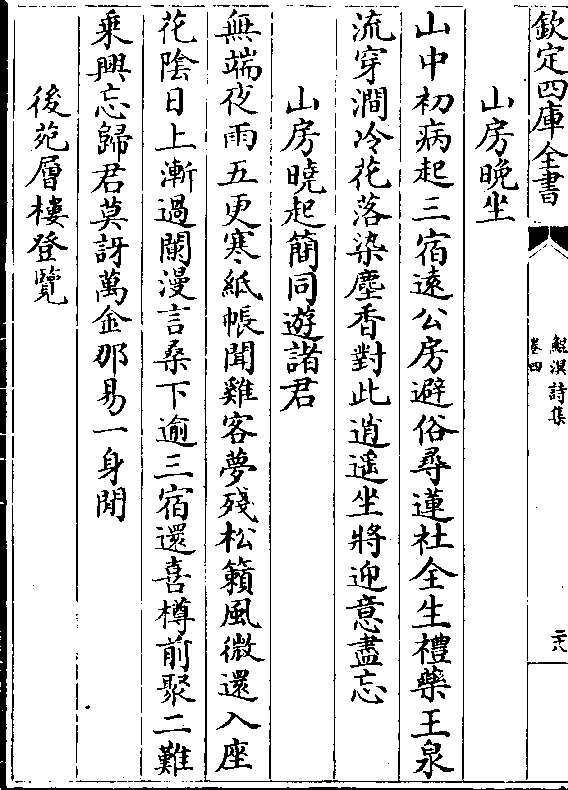 欽定四庫全書
鯤溟詩集
卷四
二六
山房晚坐
山中初病起三宿遠公房避俗尋蓮社全生禮藥王泉
流穿澗冷花落染塵香對此逍遥坐將迎意盡忘
山房曉起簡同遊諸君
無端夜雨五更寒紙帳聞雞客夢殘松籟風微還入座
花陰日上漸過闌漫言桑下逾三宿還喜樽前聚二難
乗興忘歸君莫訝萬金那易一身閒
後苑層樓登覽